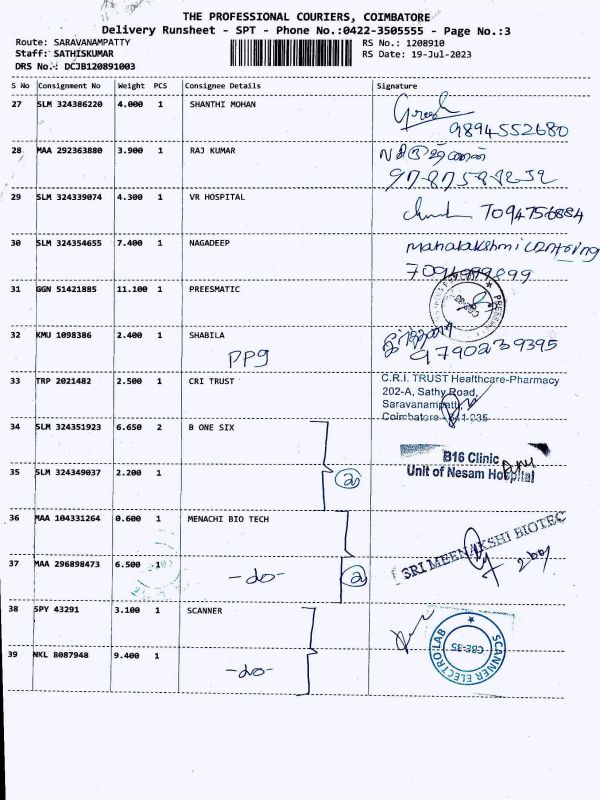 THE PROFESSIONAL COURIERS, COIMBATORE
Delivery Runsheet - SPT - Phone No.:0422-3505555 - Page No.:3
Route: SARAVANAMPATTY
RS No.: 1208910
Staff: SATHISKUMAR
RS Date: 19-Jul-2023
DRS No.: DCJB120891003
S No Consignment No Weight PCS Consignee Details Signature
27 SLM 324386220 4.000 1 SHANTHI MOHAN
9894552680
28 MAA 292363880 3.900 1 RAJ KUMAR
29 SLM 324339074 4.300 1 VR HOSPITAL
7094756884
30 SLM 324354655 7.400 1 NAGADEEP
Mahalakshmi
31 GGN 51421885 11.100 1 PREESMATIC
32 KMU 1098386 2.400 1 SHABILA
PPG
9790239395
33 TRP 2021482 2.500 1 CRI TRUST
C.R.I. TRUST Healthcare-Pharmacy
202-A, Sathy Road,
Saravanampatti,
Coimbatore - 641 035
34 SLM 324351923 6.650 2 B ONE SIX
B16 Clinic
Unit of Nesam Hospital
35 SLM 324349037 2.200 1
2
36 MAA 104331264 0.600 1 MENACHI BIO TECH
SRI MEENAKSHI BIOTEC
37 MAA 296898473 6.500 1
-do-
2
38 SPY 43291 3.100 1 SCANNER
SCANNER ELECTRO LAB
CBE-35
39 NKL 8087948 9.400 1
-do-